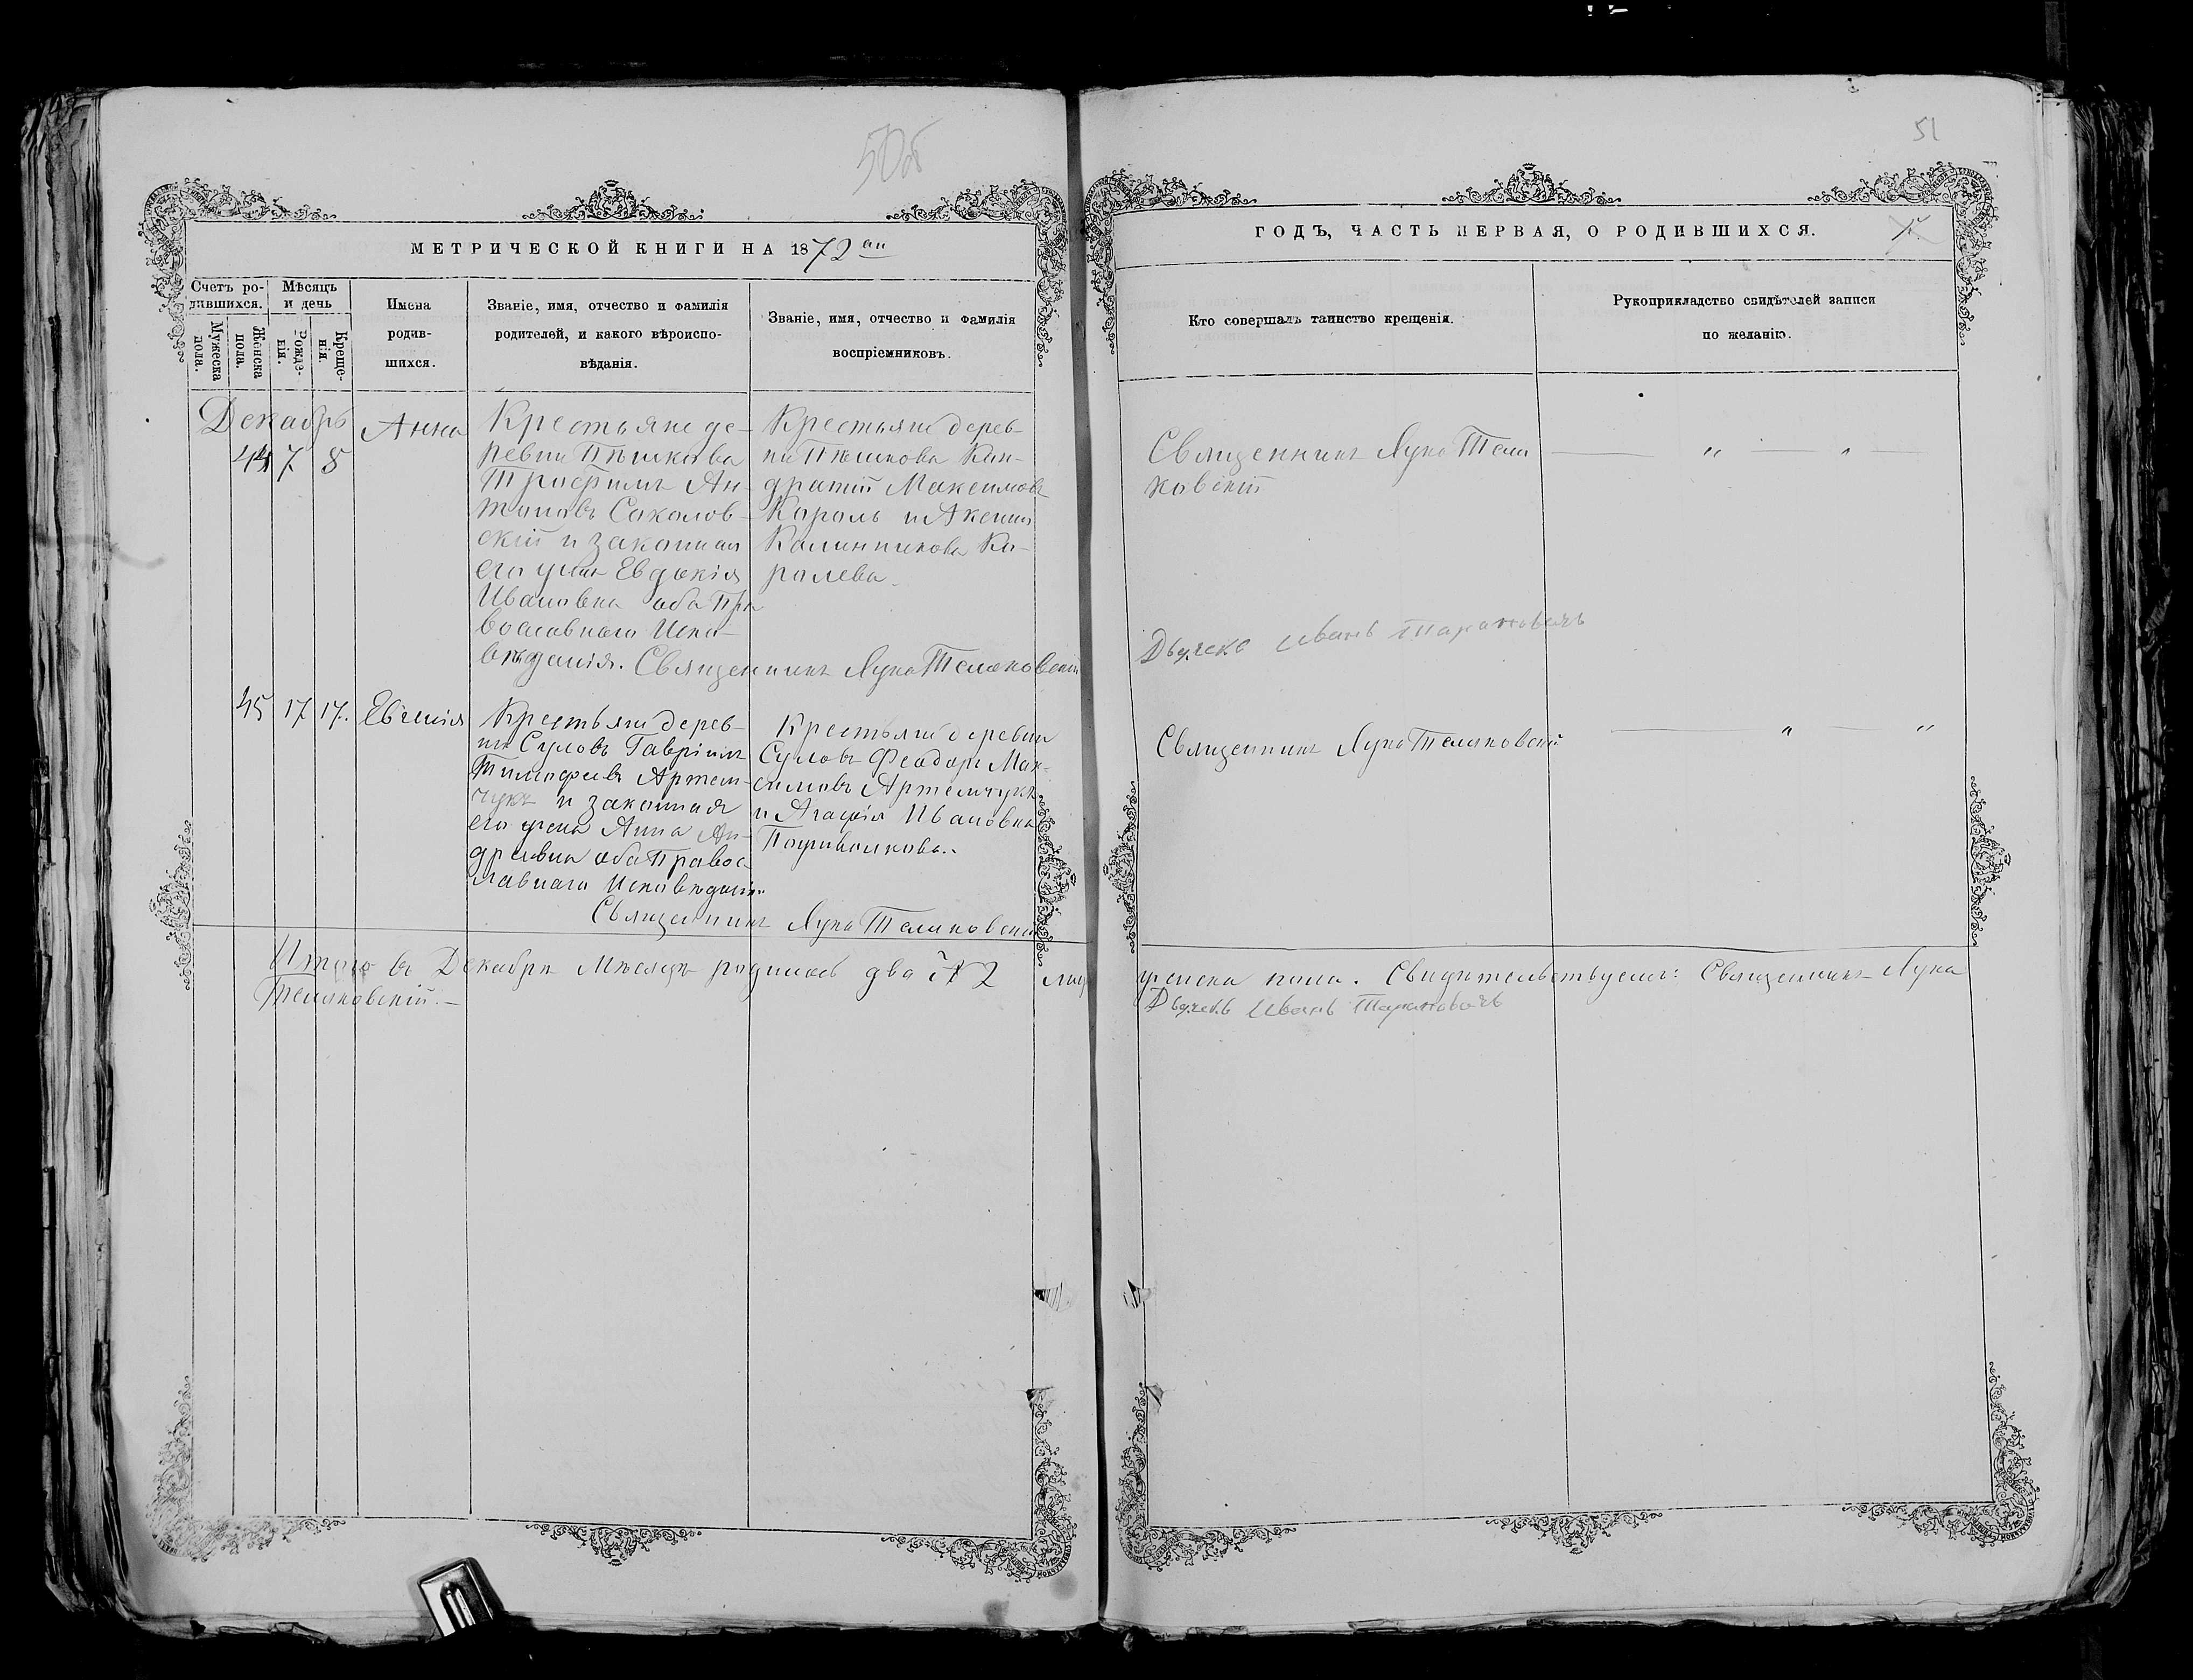 50об
51
МЕТРИЧЕСКОЙ КНИГИ НА 1872 ой
Счетъ ро-
дившихся.
Мѣсяцъ
и день
Мужеска
пола.
Женска
пола.
Рожде-
нія.
Креще-
нія.
Имена
родив-
шихся.
Званіе, имя, отчество и фамилія
родителей, и какого вѣроиспо-
вѣданія.
Званіе, имя, отчество и фамилія
воспріемниковъ.
Декабрь
44 7 8
Анна
Крестьяне де-
ревни Пѣшкова
Трофимъ Ан-
тоновъ Соколов-
скій и законная
его жена Евдокія
Ивановна оба Пра
вославнаго Испо-
вѣданія. Священникъ Лука Теляковскій
Крестьяне дерев-
ни Пѣшкова Кон-
дратій Максимовъ
Король и Аксинія
Калинникова Ко-
ролева.
45 17 17. Евгенія
Крестьяне дерев-
ни Суловъ Гавріилъ
Тимофеевъ Артем-
чукъ и законная
его жена Анна Ан-
дреевна оба Правос
лавнаго Исповѣданія.
Священникъ Лука Теляковскій
Крестьяне деревни
Суловъ Феодоръ Мак-
симовъ Артемчукъ
и Агафія Ивановна
Итого въ Декабрѣ Мѣсяцѣ родилось два 2
Теляковскій.
ГОДЪ, ЧАСТЬ ПЕРВАЯ, О РОДИВШИХСЯ.
Кто совершалъ таинство крещенія.
Рукоприкладство свидѣтелей записи
по желанію.
Священникъ Лука Теля
ковскій
Дьячекъ Иванъ Тарановичъ
Священникъ Лука Теляковскій
женска пола. Свидѣтельствуемъ: Священникъ Лука
Дьячекъ Иванъ Тарановичъ